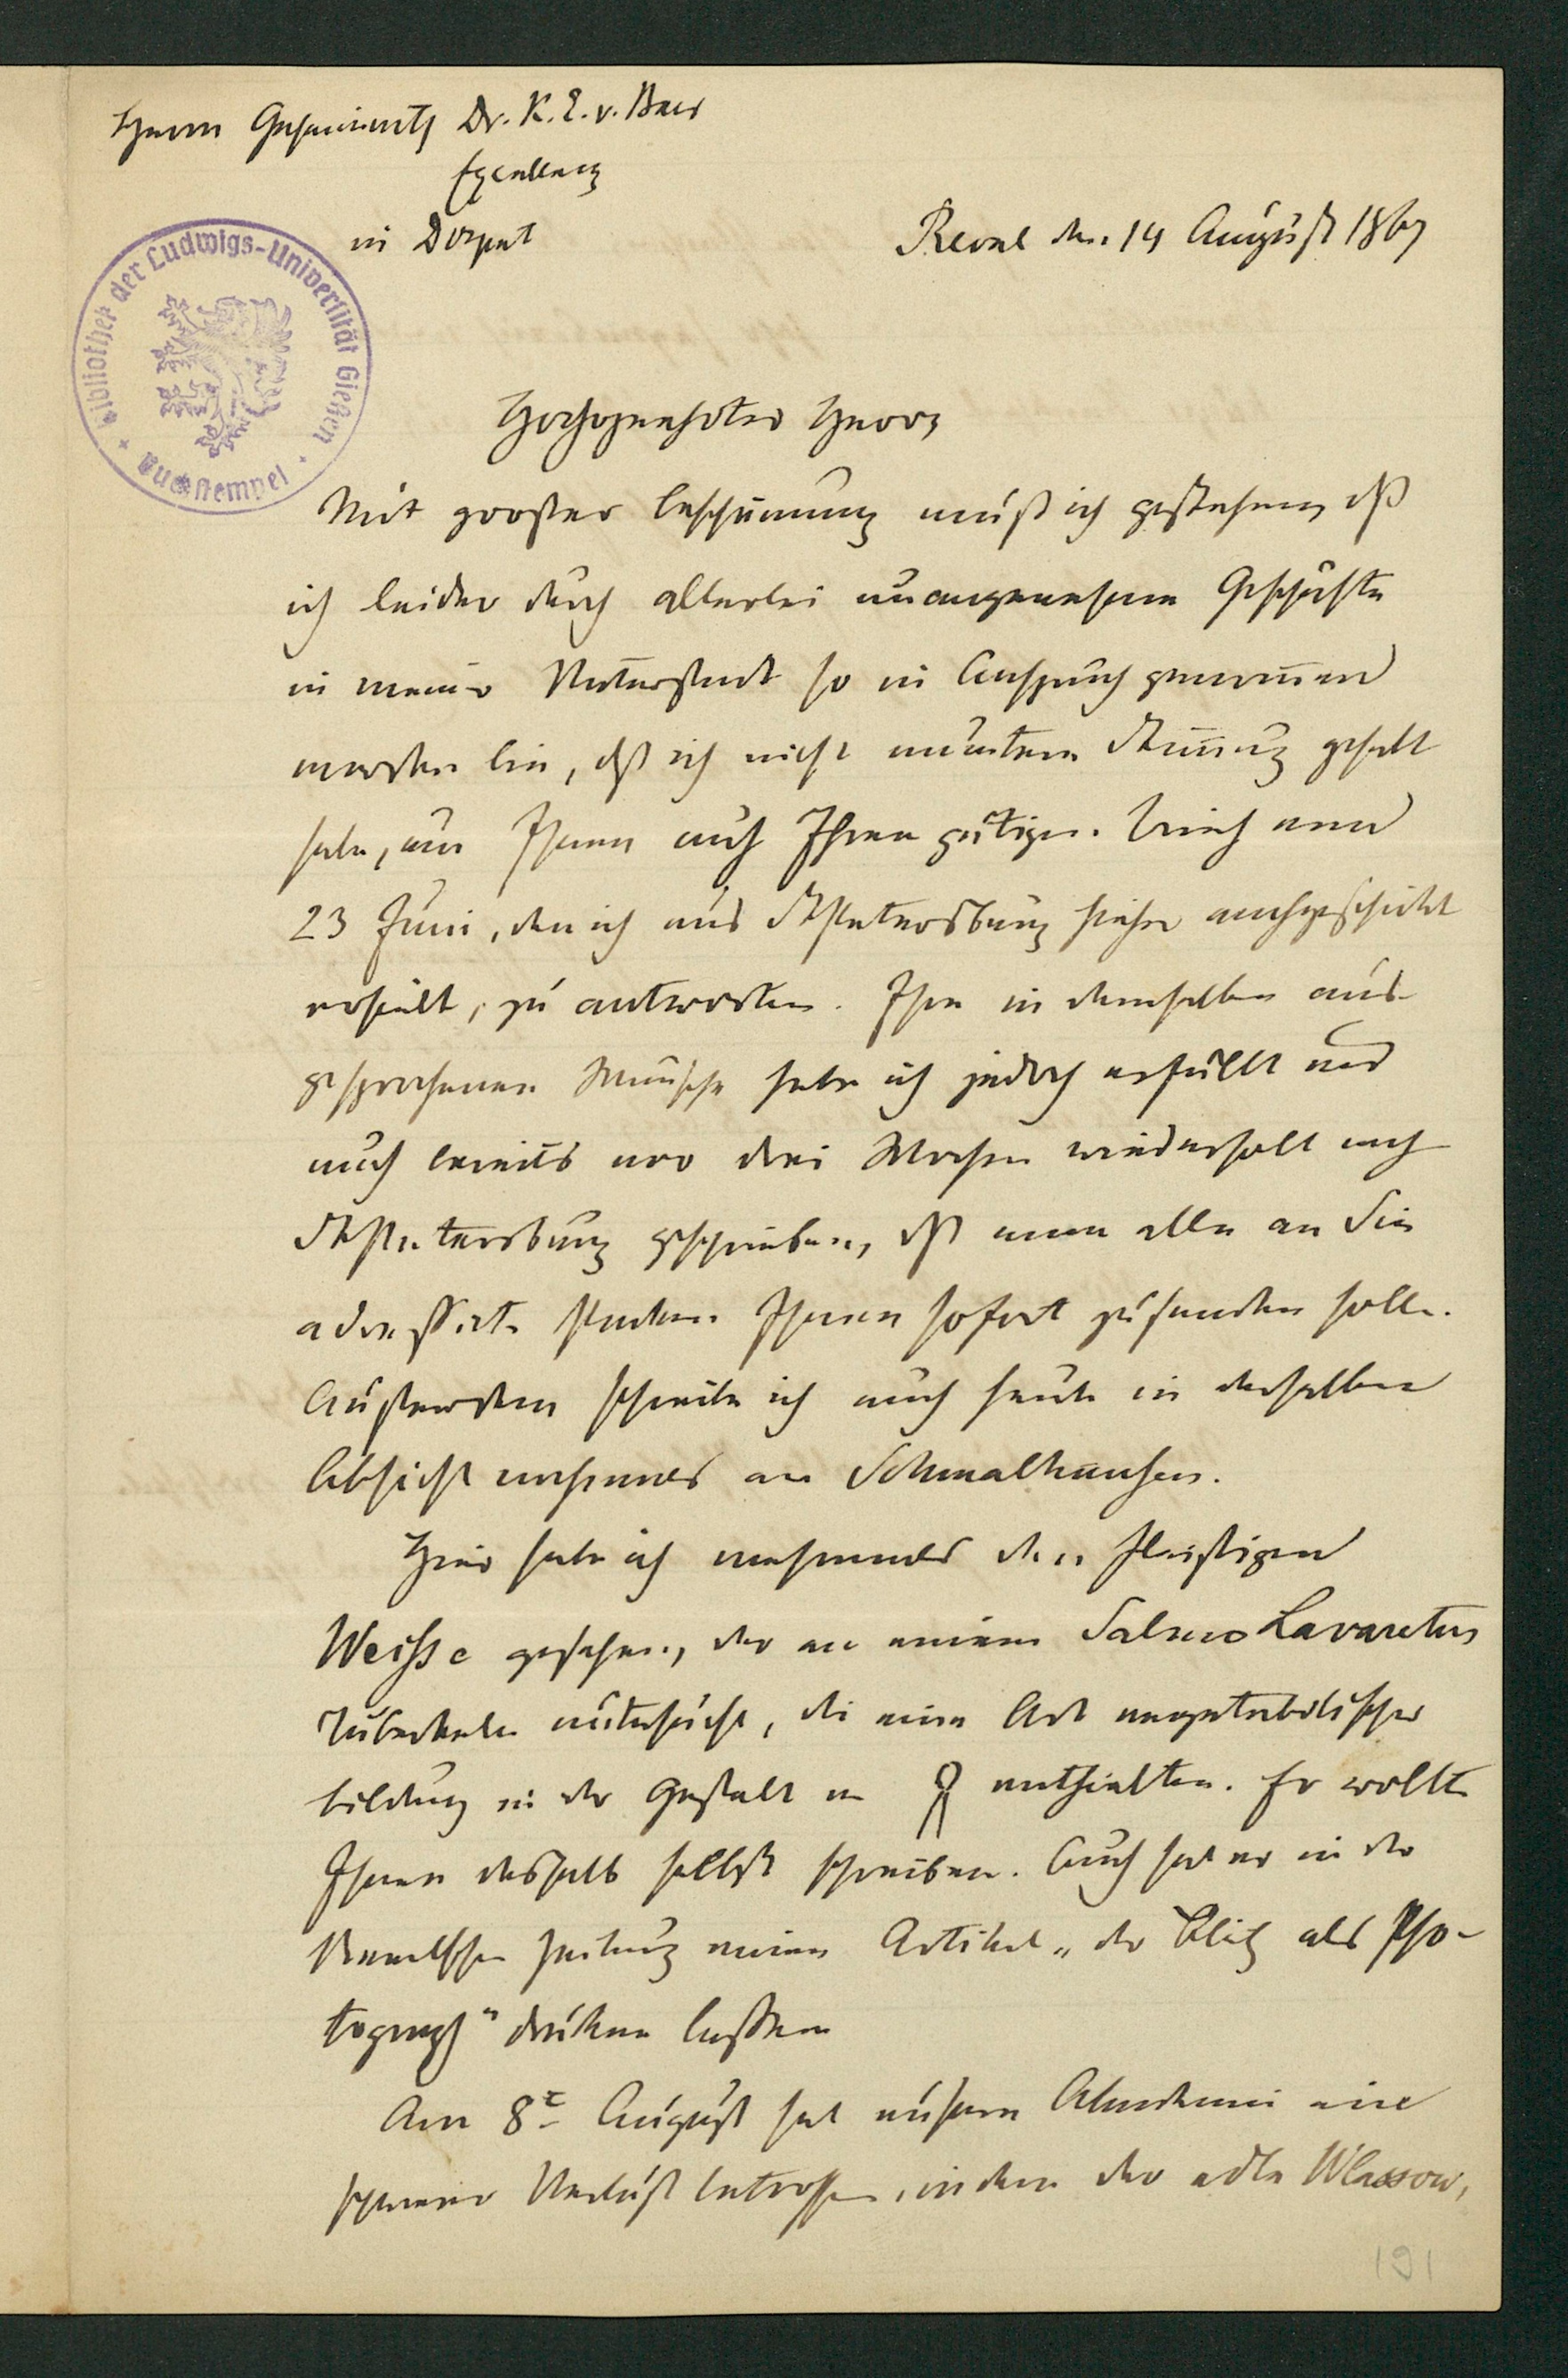 Herrn Geheimrath Dr. K. E. v. Baer
Excellenz
in Dorpat
Reval den 14 August 1867
Bibliothek der Ludwigs-Universität Gießen
Buchstempel
Hochgeehrter Herr,
Mit großer Beschämung muß ich gestehen, dß
ich leider durch allerlei unangenehme Geschäfte
in meiner Vaterstadt so in Anspruch genommen
worden bin, dß ich nicht Stimmung gehabt
habe, um Ihnen auf Ihren gütigen Brief vom
23 Juni, den ich aus St Petersburg hieher nachgeschickt
erhielt, zu antworten. Ihre in demselben aus-
gesprochenen Wünsche habe ich jedoch erfüllt und
auch bereits vor drei Wochen wiederholt nach
St Petersburg geschrieben, dß man alle an Sie
adressirte Sachen Ihnen sofort zusenden solle.
Außerdem schreibe ich auch heute in derselben
Absicht nochmals an Schmalhausen.
Hier habe ich mehrmals den fleißigen
Weisse gesehen, der an einem Salmo Lavaretus
Tuberkeln untersucht, die eine Art vegetabilischer
Bildung in der Gestalt v enthielten. Er wollte
Ihnen deshalb selbst schreiben. Auch hat er in der
Revalschen Zeitung einen Artikel „der Blitz als Pho-
tograph" drucken lassen
Am 8t August hat unsere Akademie ein
schwerer Verlust betroffen, indem der edle Wlassow,
191